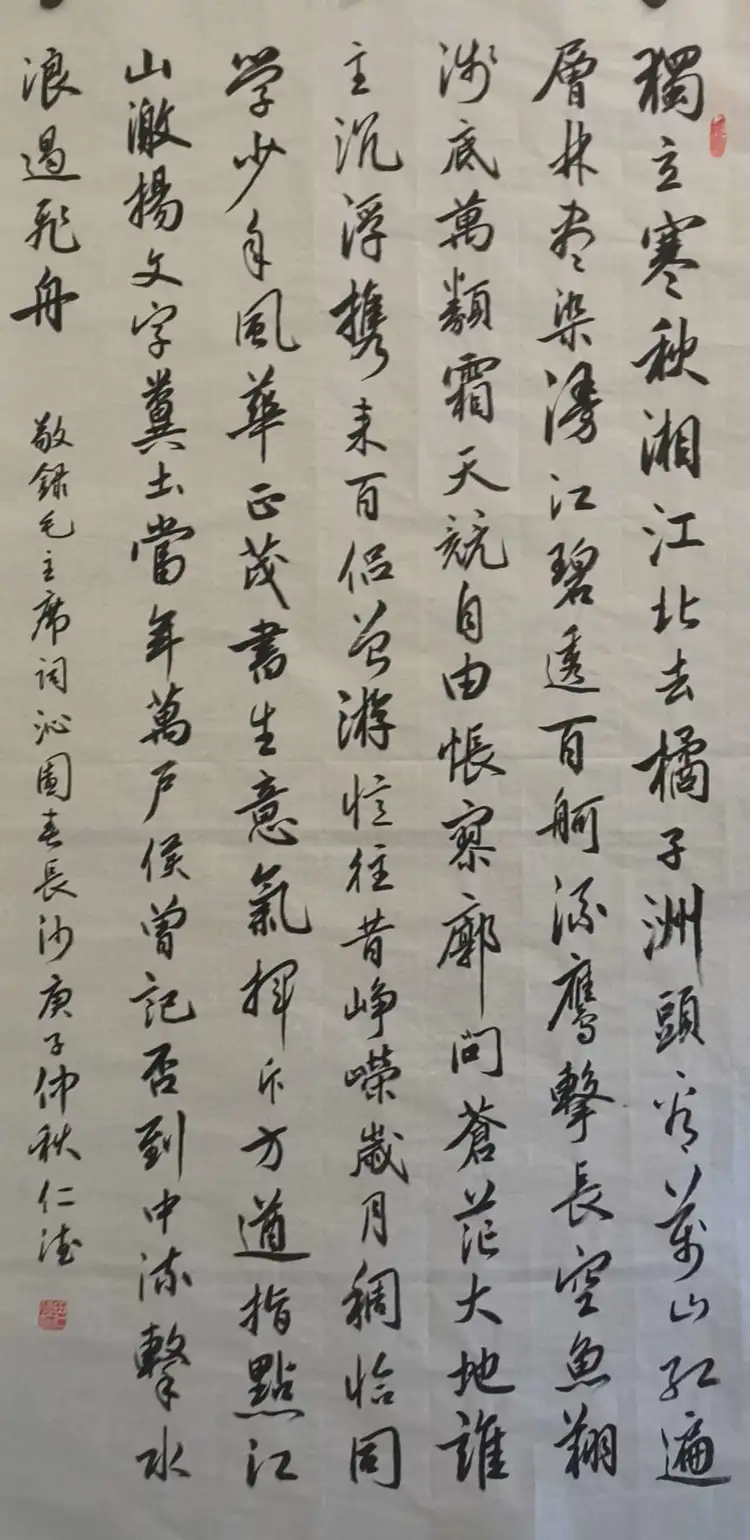 獨立寒秋湘江北去橘子洲頭看萬山红遍
層林盡染漫江碧透百舸流鷹擊長空魚翔
淺底萬類霜天競自由悵寥廓問蒼茫大地誰
主沉浮携来百侣曾游憶往昔峥嶸歲月稠恰同
学少年風華正茂書生意氣揮斥方遒指點江
山激揚文字糞土當年萬户侯曾記否到中流擊水
浪遏飛舟
敬録毛主席词沁園春長沙庚子仲秋仁德